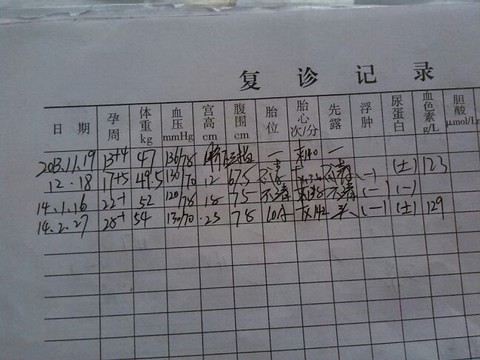 复诊记录
日期 孕周 体重kg 血压mmHg 宫高cm 腹围cm 胎位 胎心次/分 先露 浮肿 尿蛋白 血色素g/L 胆酸μmol/L
2013.11.19 13+4 47 130/78 一 140 一 (±) 123
12.18 17+5 49.5 130/70 12 67.5 不清 不清 (-)
14.1.16 22-1 52 120/78 18 75 不清 不清 (-) (-)
14.2.27 28-1 54 130/70 23 78 LOA 142 头 (-) (±) 129